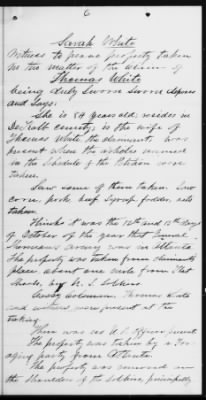 6
Sarah White
Witness to prove property taken
in the matter of the claim of
Thomas White
being duly Sworn deposes
and Says:
She is 54 years old: resides in
DeKalb County; is the wife of
Thomas White the claimant; was
present when the articles named
in the Schedule of the Petition were
taken.
Saw some of them taken. Saw
corn, pork, beef, Syrup, fodder, etc
taken.
Thinks it was the 12th and 13th days
of October of the year that General
Sherman's army was in Atlanta
The property was taken from claimants
place about one mile from Flat
Shoals, by U. S. Soldiers
Thomas White
and witness were present at the
taking.
There was no U. S. officer present
The property was taken by a For-
aging party from Atlanta.
The property was removed on
the shoulders of the Soldiers, principally